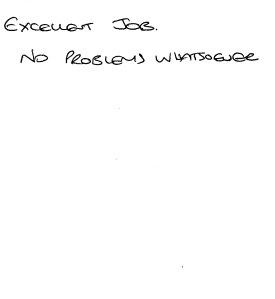 EXCELLENT JOB.
NO PROBLEMS WHATSOEVER